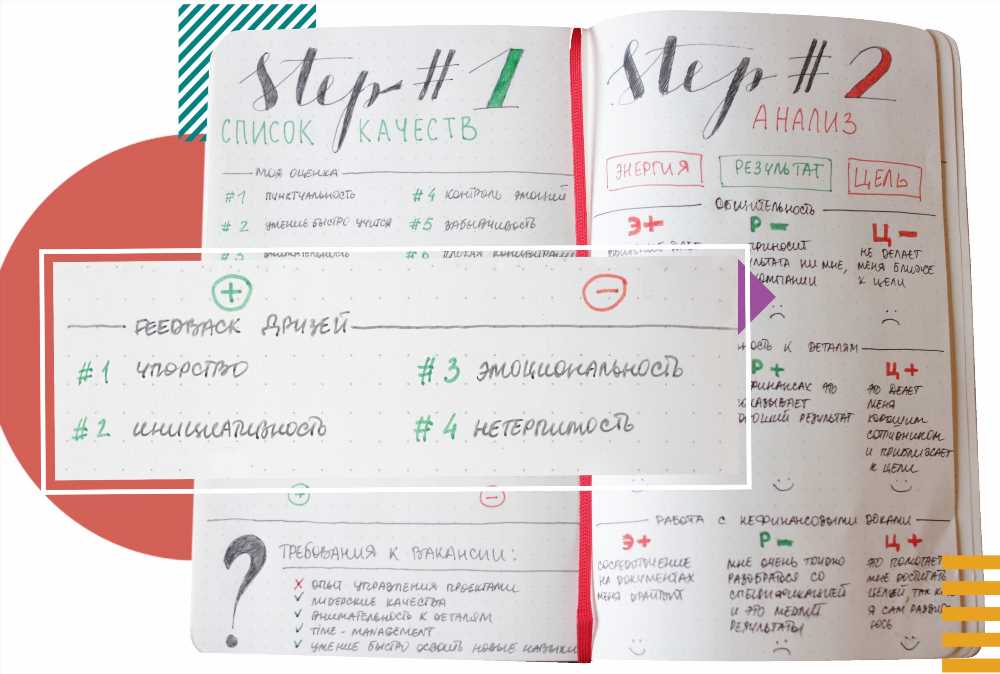 Step #1
СПИСОК КАЧЕСТВ
МОЯ ОЦЕНКА
#1 ПУНКТУАЛЬНОСТЬ
#2 УМЕНИЕ БЫСТРО УЧИТСЯ
#3 ВНИМАТЕЛЬНОСТЬ
#4 КОНТРОЛЬ ЭМОЦИЙ
#5 ЗАБЫВЧИВОСТЬ
#6 ПЛОХАЯ
+ −
FEEDBACK ДРУЗЕЙ
#1 УПОРСТВО
#2 ИНИЦИАТИВНОСТЬ
#3 ЭМОЦИОНАЛЬНОСТЬ
#4 НЕТЕРПИМОСТЬ
+ −
? ТРЕБОВАНИЯ К ВАКАНСИИ:
✗ ОПЫТ УПРАВЛЕНИЯ ПРОЕКТАМИ
✓ ЛИДЕРСКИЕ КАЧЕСТВА
✓ ВНИМАТЕЛЬНОСТЬ К ДЕТАЛЯМ
✓ TIME - MANAGEMENT
✓ УМЕНИЕ БЫСТРО ОСВОИТЬ НОВЫЕ НАВЫКИ
Step #2
АНАЛИЗ
ЭНЕРГИЯ РЕЗУЛЬТАТ ЦЕЛЬ
ОБЩИТЕЛЬНОСТЬ
Э+
Р−
ПРИНОСИТ
НИ МНЕ,
Ц−
НЕ ДЕЛАЕТ
МЕНЯ БЛИЖЕ
К ЦЕЛИ
К ДЕТАЛЯМ
Р+
ФИНАНСАХ ЭТО
РЕЗУЛЬТАТ
Ц+
ЭТО ДЕЛАЕТ
МЕНЯ
ХОРОШИМ
СОТРУДНИКОМ
И ПРИБЛИЖАЕТ
К ЦЕЛИ
РАБОТА С НЕФИНАНСОВЫМИ ДОКАМИ
Э+
СОСРЕДОТОЧЕНИЕ
НА ДОКУМЕНТАХ
МЕНЯ ДРАЙВИТ
Р−
МНЕ ОЧЕНЬ ТРУДНО
РАЗОБРАТЬСЯ СО
СПЕЦИФИКАЦИЕЙ
И ЭТО МЕДЛИТ
РЕЗУЛЬТАТЫ
Ц+
ЭТО ПОМОГАЕТ
МНЕ ДОСТИГАТЬ
ЦЕЛЕЙ, ТАК
Я САМ